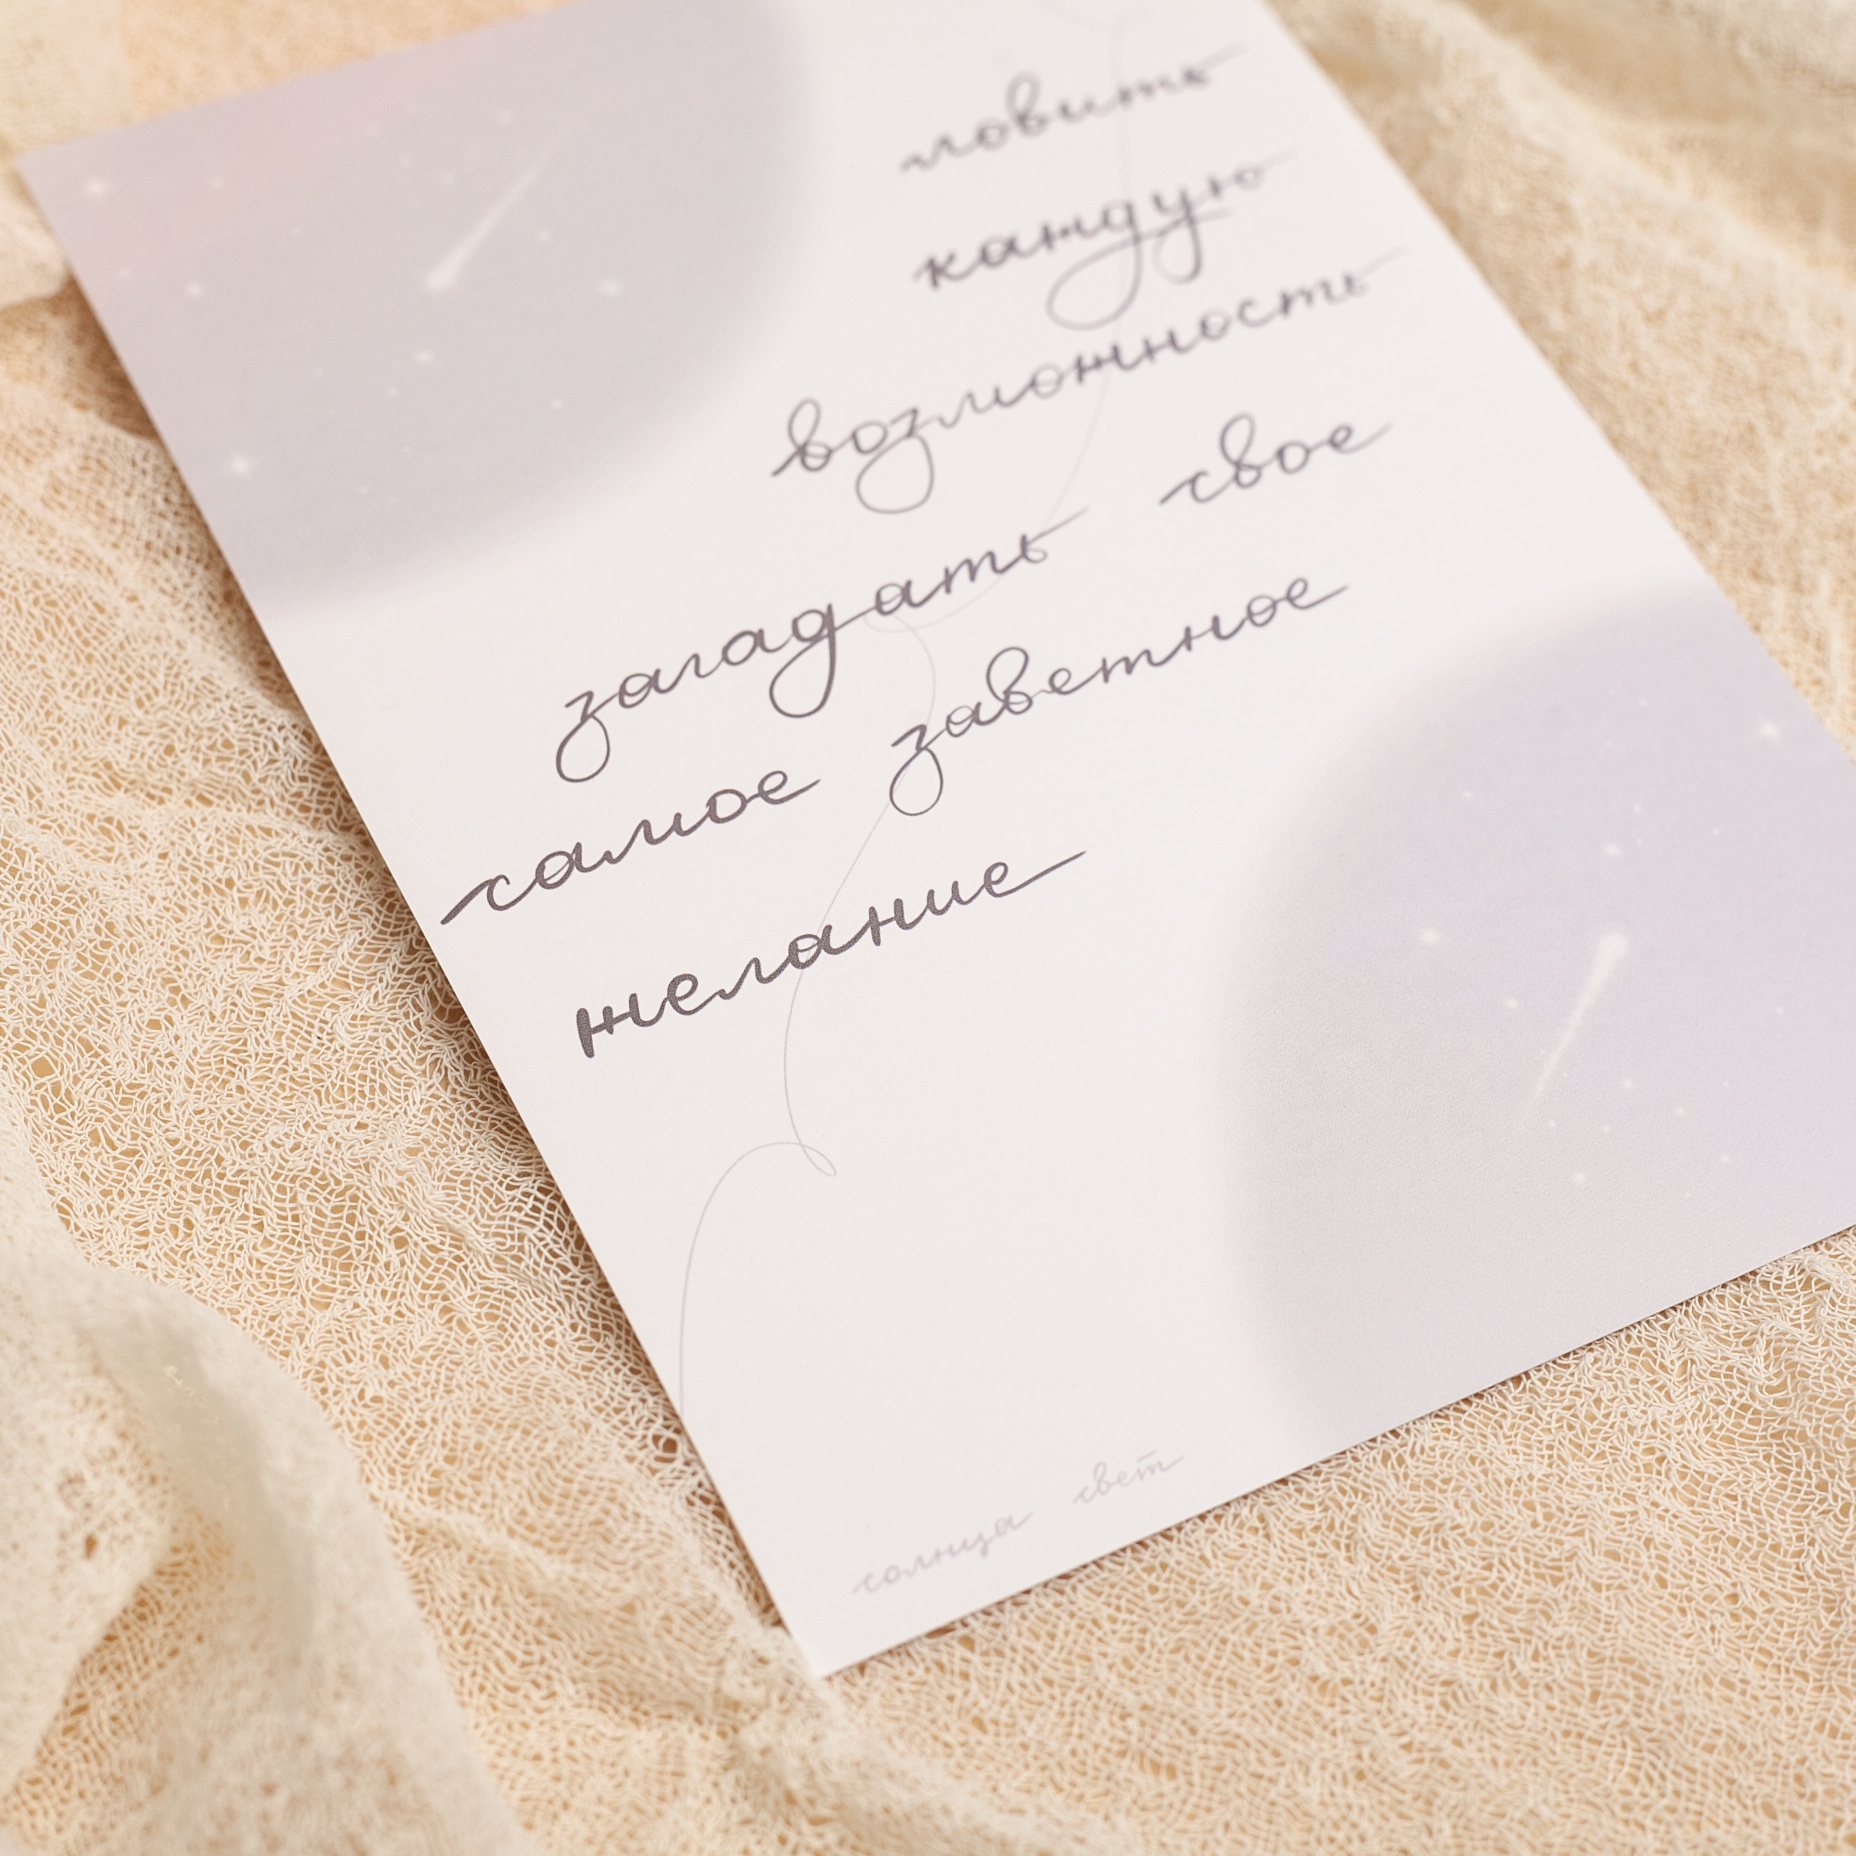 ловить
каждую
возможность
загадать свое
самое заветное
желание
солнца свет